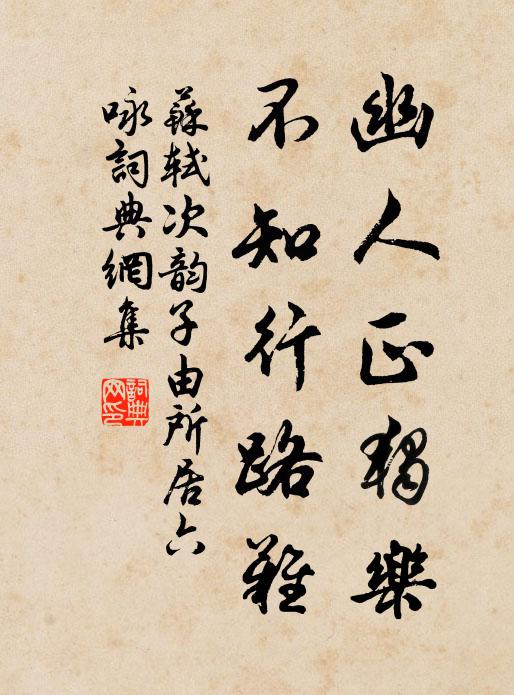 幽人正獨樂
不知行路難
蘇軾次韵子由所居六
咏詞典網集
詞典
网印